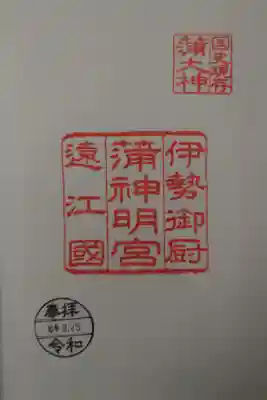 国史現在
蒲大神
伊勢御厨
蒲神明宮
遠江國
奉拝
令和